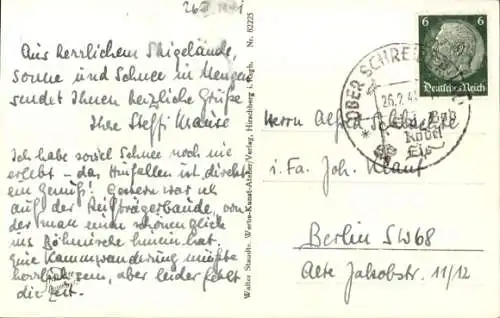 26. II. 1941
Aus herrlichem Skigelände,
Sonne und Schnee in Mengen
sendet Ihnen herzliche Grüße
Ihre Steffi Krause
Ich habe soviel Schnee noch nie
erlebt – das Hinfallen ist direkt
ein Genuß! Gestern war ich
auf der Reifträgerbaude, von
der man einen schönen Blick
ins Böhmische hinein hat.
Eine Kammwanderung müßte
herrlich sein, aber leider fehlt
die Zeit.
Walter Staudte, Werbe-Kunst-Atelier/Verlag, Hirschberg i. Rsgb. Nr. 62225
6 6
Deutsches Reich
OBER SCHREIBERHAU
26.2.41
Bob
Rodel
Eis
Herrn Alfred
i. Fa. Joh. Klauf
Berlin SW68
Alte Jakobstr. 11/12